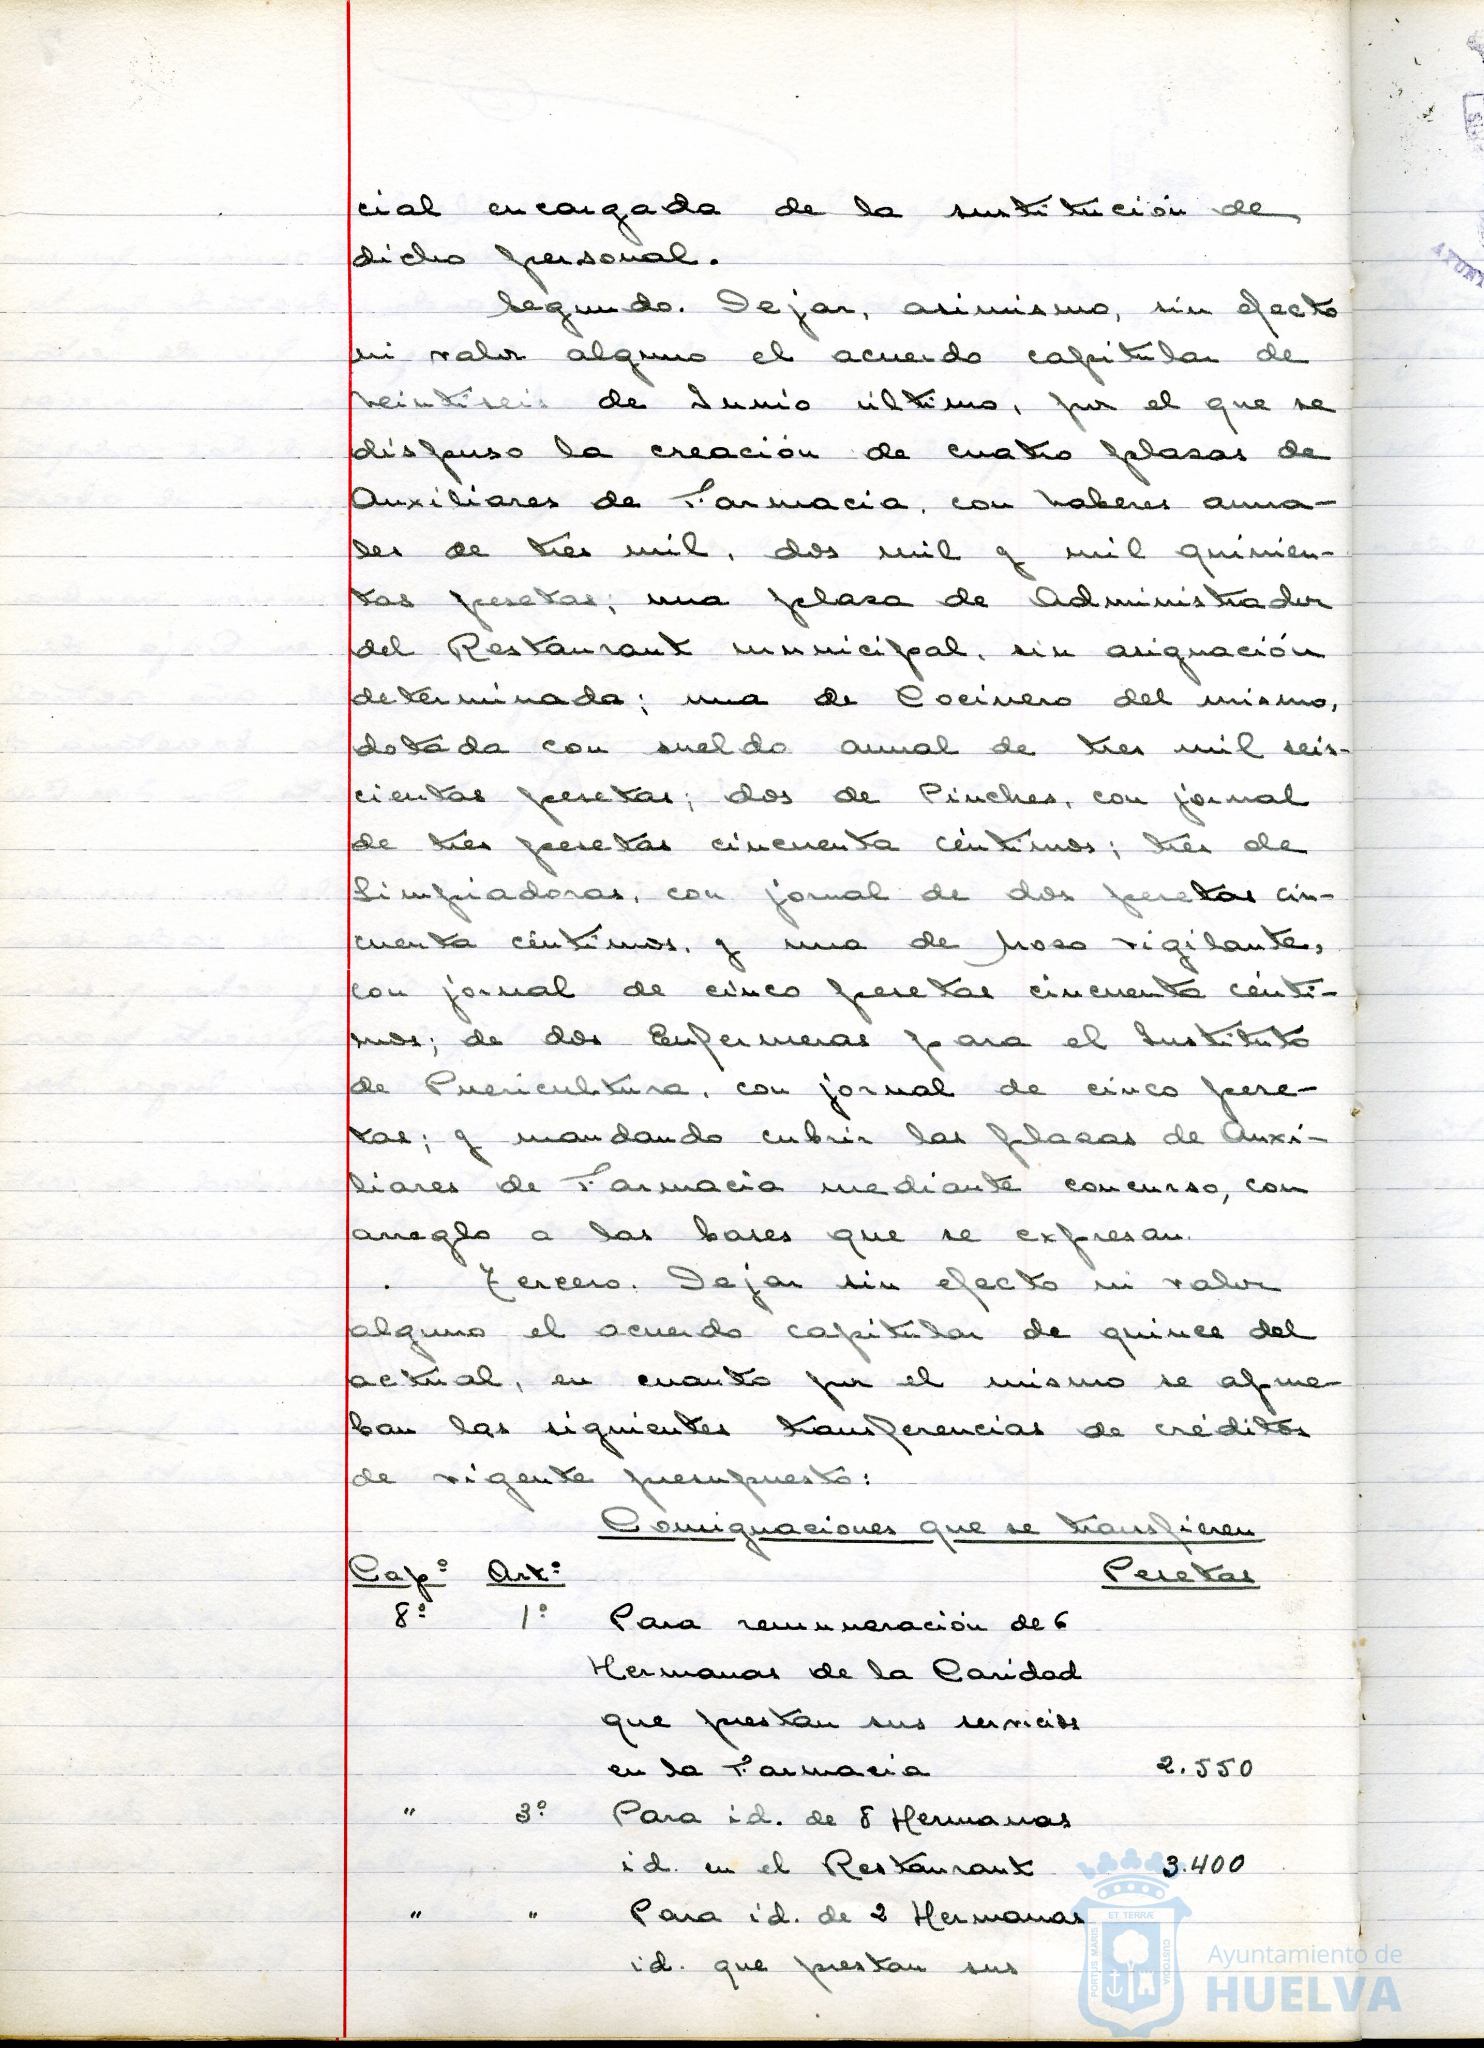 cial encargada de la sustitución de
dicho personal.
Segundo. Dejar, asimismo, sin efecto
ni valor alguno el acuerdo capitular de
veintiseis de Junio último, por el que se
dispuso la creación de cuatro plazas de
Auxiliares de Farmacia, con haberes anua-
les de tres mil, dos mil y mil quinien-
tas pesetas; una plaza de Administrador
del Restaurant municipal, sin asignación
determinada; una de Cocinero del mismo,
dotada con sueldo anual de tres mil seis-
cientas pesetas; dos de Pinches, con jornal
de tres pesetas cincuenta céntimos; tres de
Limpiadoras, con jornal de dos pesetas cin-
cuenta céntimos, y una de Mozo vigilante,
con jornal de cinco pesetas cincuenta cénti-
mos; de dos Enfermeras para el Instituto
de Puericultura, con jornal de cinco pese-
tas; y mandando cubrir las plazas de Auxi-
liares de Farmacia mediante concurso, con
arreglo a las bases que se expresan.
Tercero. Dejar sin efecto ni valor
alguno el acuerdo capitular de quince del
actual, en cuanto por el mismo se aprue-
ban las siguientes transferencias de créditos
de vigente presupuesto:
Consignaciones que se transfieren
Capº Artº Pesetas
8º 1º Para remuneración de 6
Hermanas de la Caridad
que prestan sus servicios
en la Farmacia 2.550
" 3º Para id. de 8 Hermanas
id. en el Restaurant 3.400
" " Para id. de 2 Hermanas
id. que prestan sus
PORTUS MARIS ET TERRÆ CUSTODIA
Ayuntamiento de
HUELVA